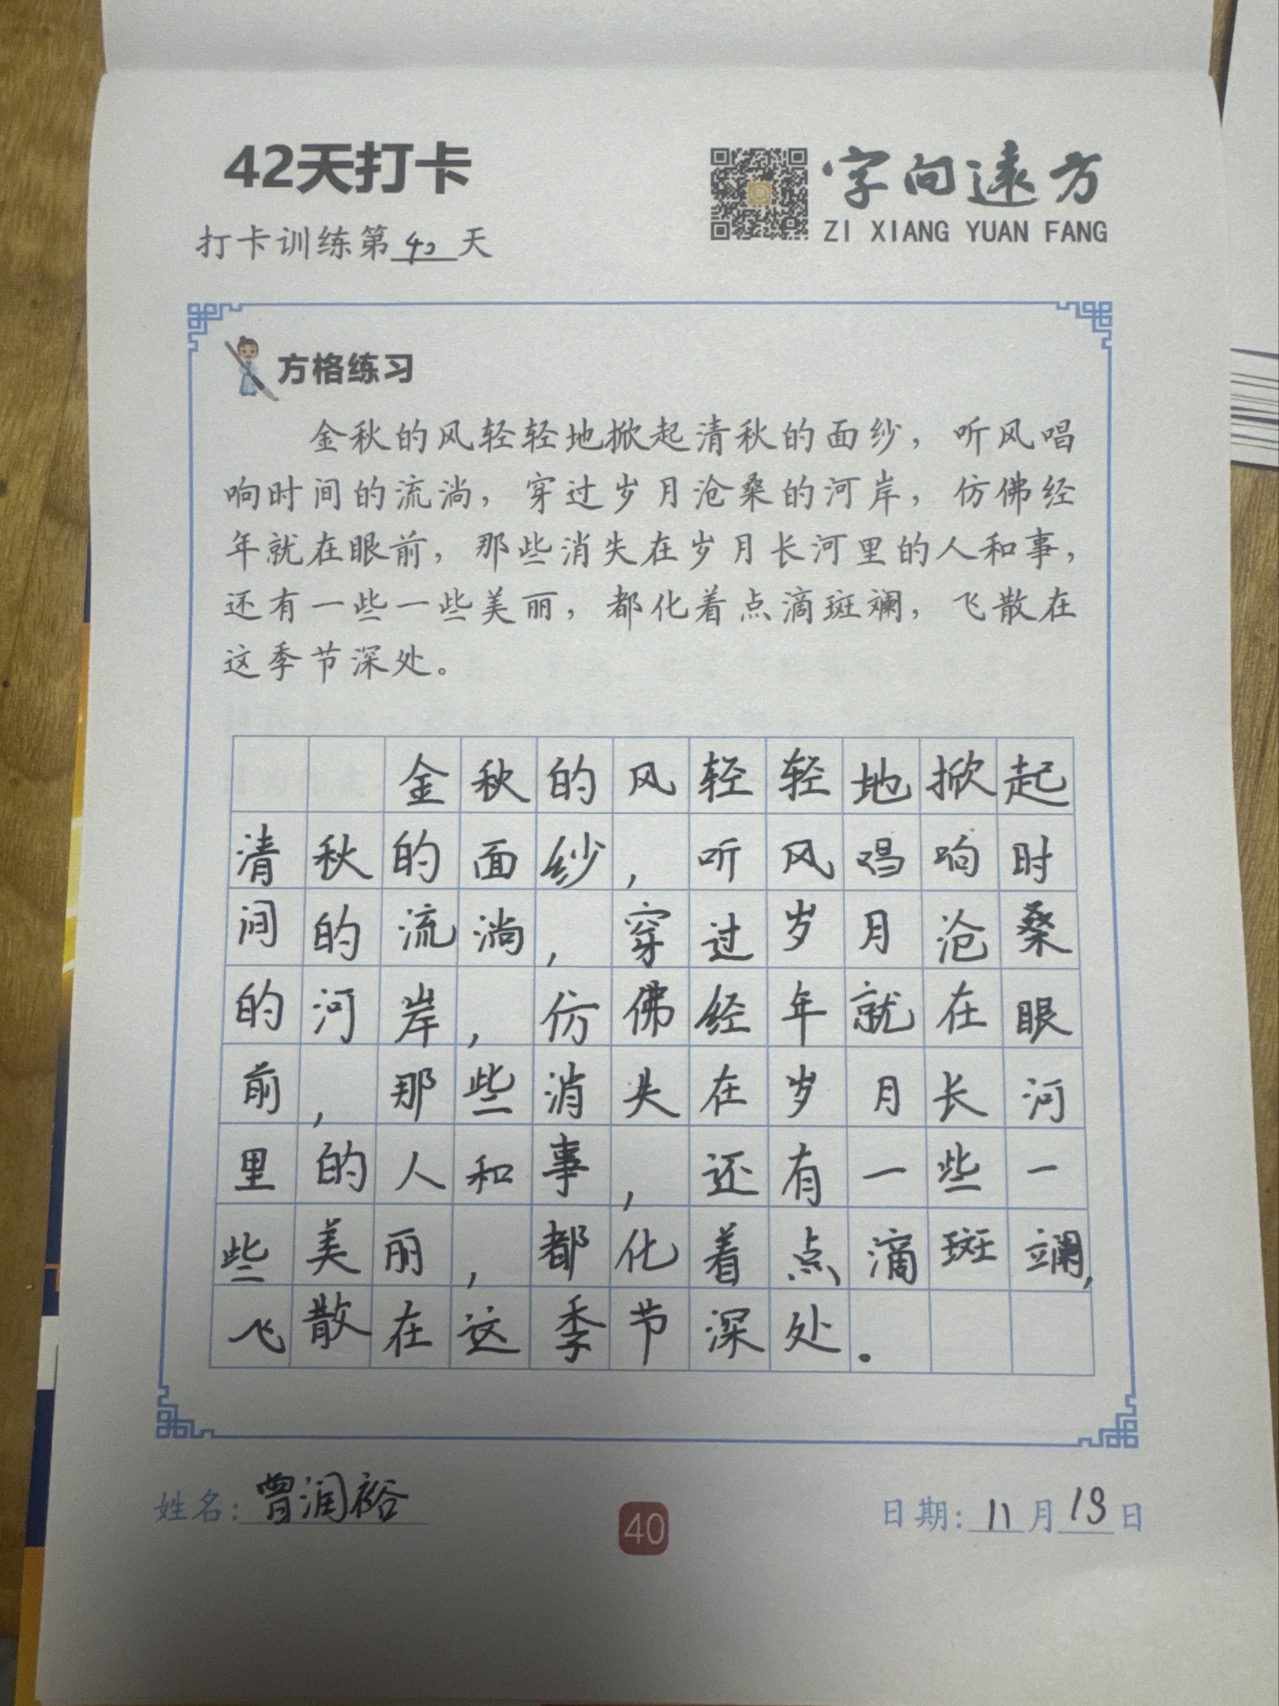 42天打卡
字向远方
ZI XIANG YUAN FANG
打卡训练第40天
方格练习
金秋的风轻轻地掀起清秋的面纱，听风唱
响时间的流淌，穿过岁月沧桑的河岸，仿佛经
年就在眼前，那些消失在岁月长河里的人和事，
还有一些一些美丽，都化着点滴斑斓，飞散在
这季节深处。
金秋的风轻轻地掀起
清秋的面纱，听风唱响时
间的流淌，穿过岁月沧桑
的河岸，仿佛经年就在眼
前，那些消失在岁月长河
里的人和事，还有一些一
些美丽，都化着点滴斑斓，
飞散在这季节深处.
姓名:曾润裕
40
日期:11月19日